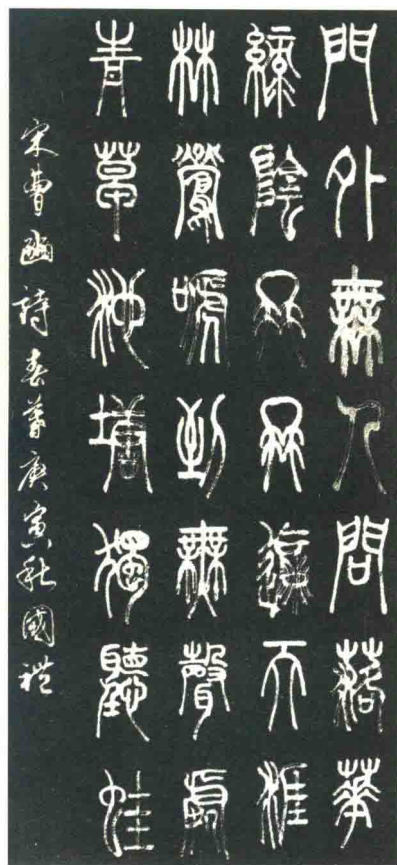 門外無人問落華
綠陰冉冉遍天涯
林鶯啼到無聲處
青草池塘獨聽蛙
宋曹豳詩春暮庚寅秋國禮